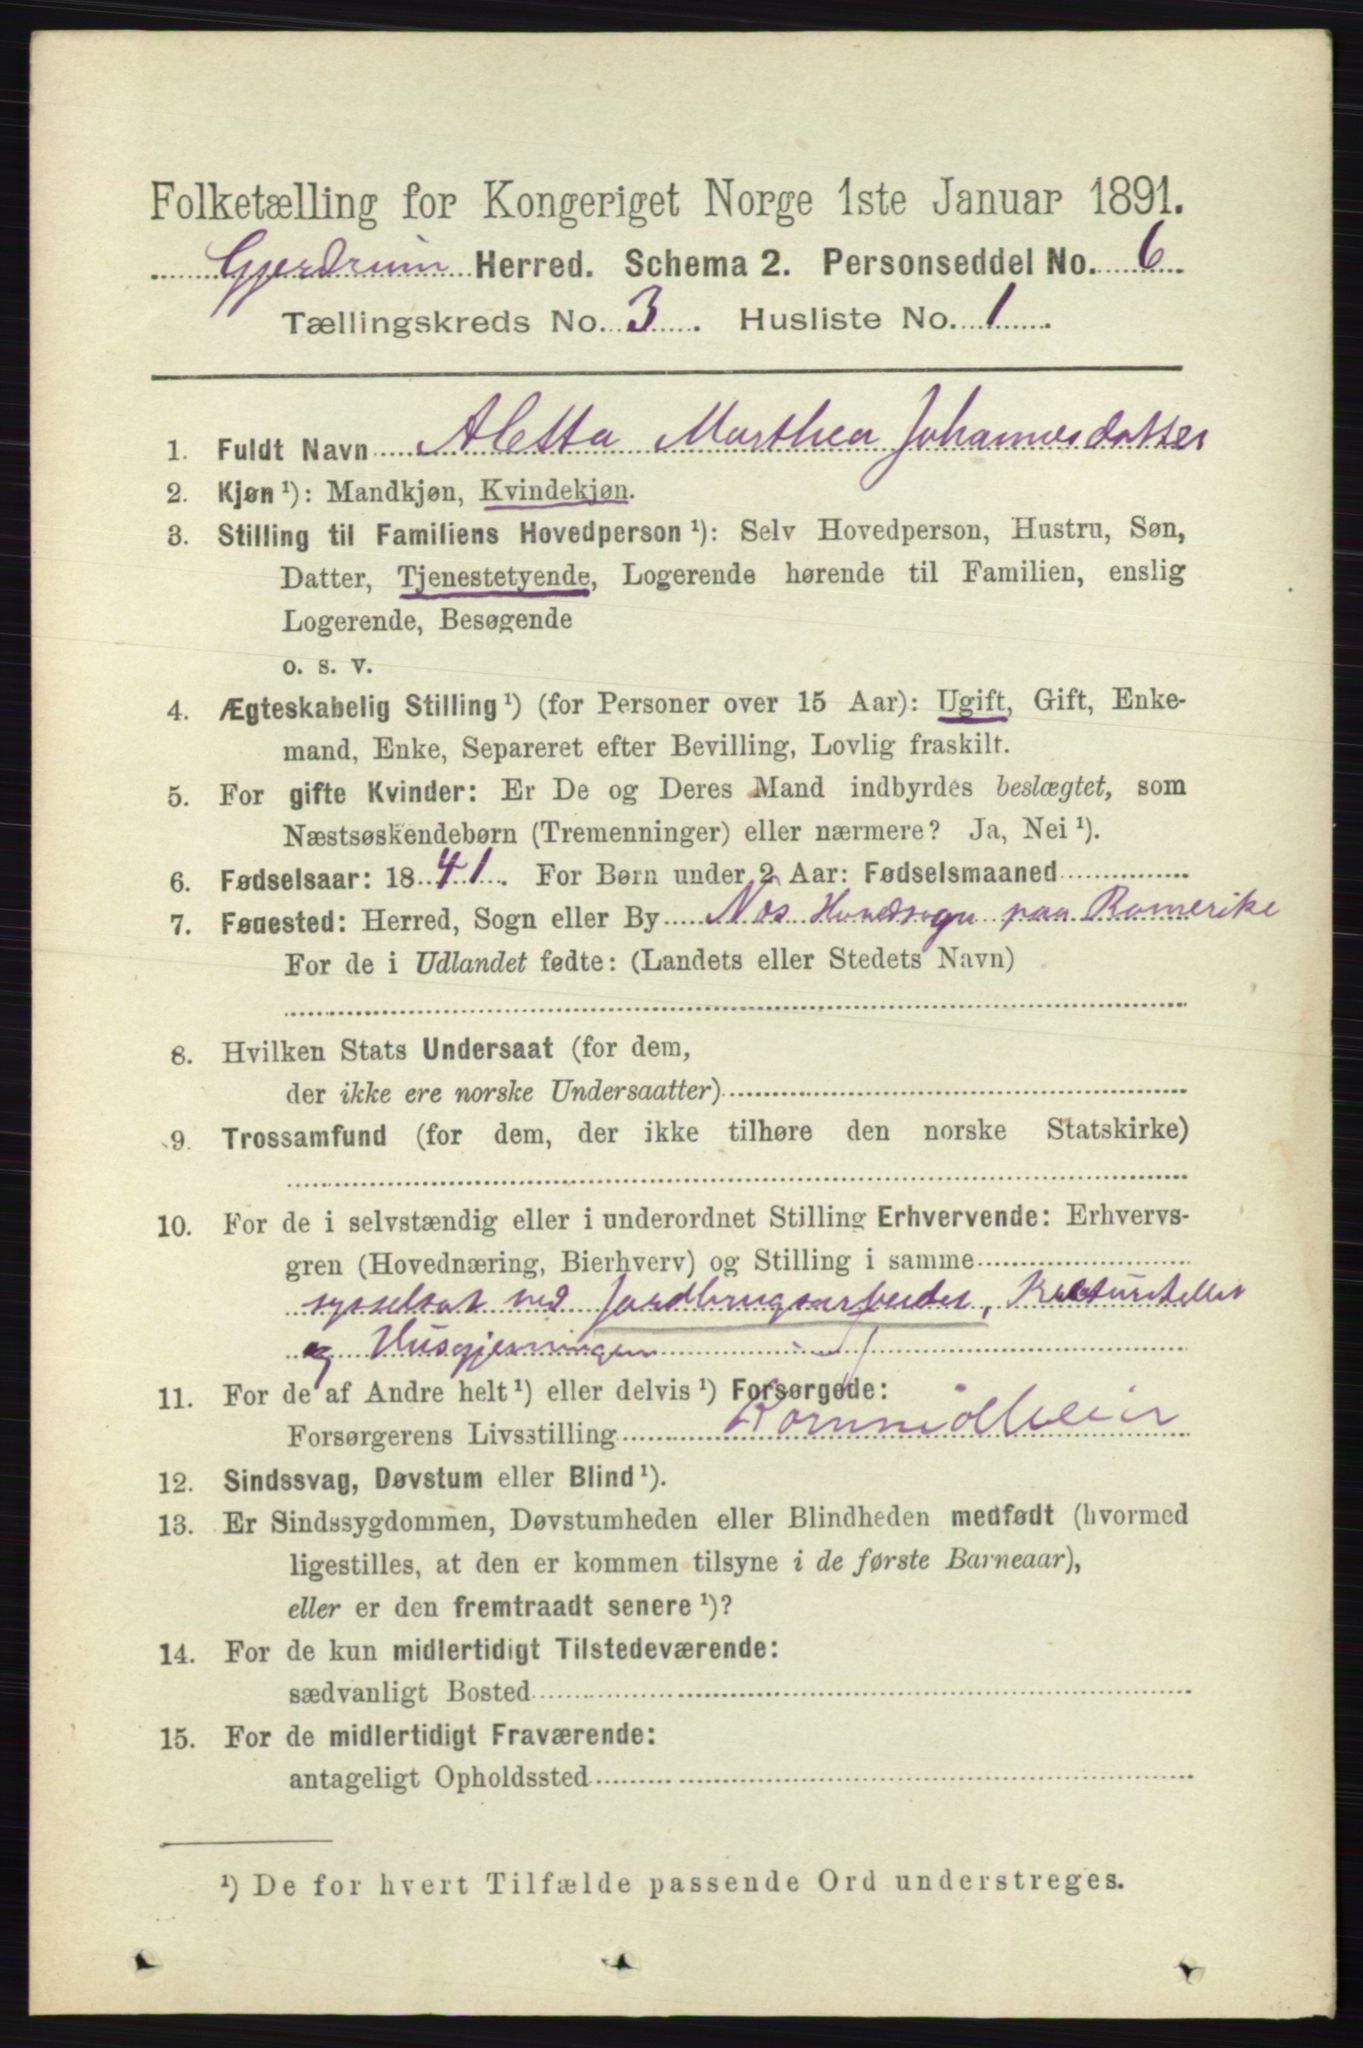 Folketælling for Kongeriget Norge 1ste Januar 1891.
Gjerdrum Herred. Schema 2. Personseddel No. 6
Tællingskreds No. 3. Husliste No. 1.
1. Fuldt Navn Aletta Marthea Johannesdatter
2. Kjøn ¹): Mandkjøn, Kvindekjøn.
3. Stilling til Familiens Hovedperson ¹): Selv Hovedperson, Hustru, Søn,
Datter, Tjenestetyende, Logerende hørende til Familien, enslig
Logerende, Besøgende
o. s. v.
4. Ægteskabelig Stilling ¹) (for Personer over 15 Aar): Ugift, Gift, Enke-
mand, Enke, Separeret efter Bevilling, Lovlig fraskilt.
5. For gifte Kvinder: Er De og Deres Mand indbyrdes beslægtet, som
Næstsøskendebørn (Tremenninger) eller nærmere? Ja, Nei ¹).
6. Fødselsaar: 1841. For Børn under 2 Aar: Fødselsmaaned
7. Føuested: Herred, Sogn eller By Næs Hovedsogn paa Romerike
For de i Udlandet fødte: (Landets eller Stedets Navn)
8. Hvilken Stats Undersaat (for dem,
der ikke ere norske Undersaatter)
9. Trossamfund (for dem, der ikke tilhøre den norske Statskirke)
10. For de i selvstændig eller i underordnet Stilling Erhvervende: Erhvervs-
gren (Hovednæring, Bierhverv) og Stilling i samme
sysselsat ved Jordbrugsarbeider, Kreaturstellet
og Husgjerningen
11. For de af Andre helt ¹) eller delvis ¹) Forsørgede:
Forsørgerens Livsstilling
12. Sindssvag, Døvstum eller Blind ¹).
13. Er Sindssygdommen, Døvstumheden eller Blindheden medfødt (hvormed
ligestilles, at den er kommen tilsyne i de første Barneaar),
eller er den fremtraadt senere ¹)?
14. For de kun midlertidigt Tilstedeværende:
sædvanligt Bosted
15. For de midlertidigt Fraværende:
antageligt Opholdssted
¹) De for hvert Tilfælde passende Ord understreges.